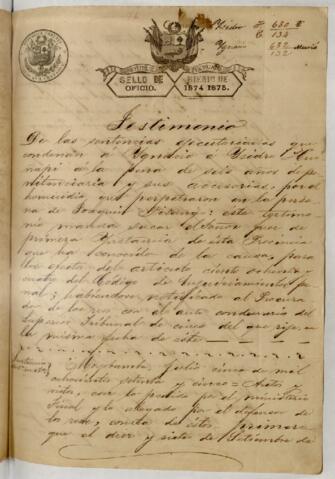 Isidro F. 630
C 134
Ygnacio 632 Murió
132
SELLO DE OFICIO.
BIENIO DE 1874 1875.
Testimonio
De las sentencias ejecutoriadas que
condenan á Ygnacio é Ysidro
á la pena de seis años de pe-
nitenciaria y sus accesorias, por el
homicidio que perpetraron en la perso-
na de Joaquin : este testimo-
nio manda sacar el Señor Juez de
primera Ynstancia de esta Provincia
que ha conocido de la causa, para
los efectos del articulo ciento ochenta y
cuatro del Código de Enjuiciamientos pe-
nal; habiendose notificado al Procura-
dor de los reos con el auto del
Superior Tribunal de cinco del que rije, en
la misma fecha de este
Moyobamba, Julio cinco de mil
ochocientos setenta y cinco = Autos y
vistos, con lo pedido por el ministerio
Fiscal y lo alegado por el defensor de
los reos, consta de estos, primero
que el diez y siete de Setiembre de